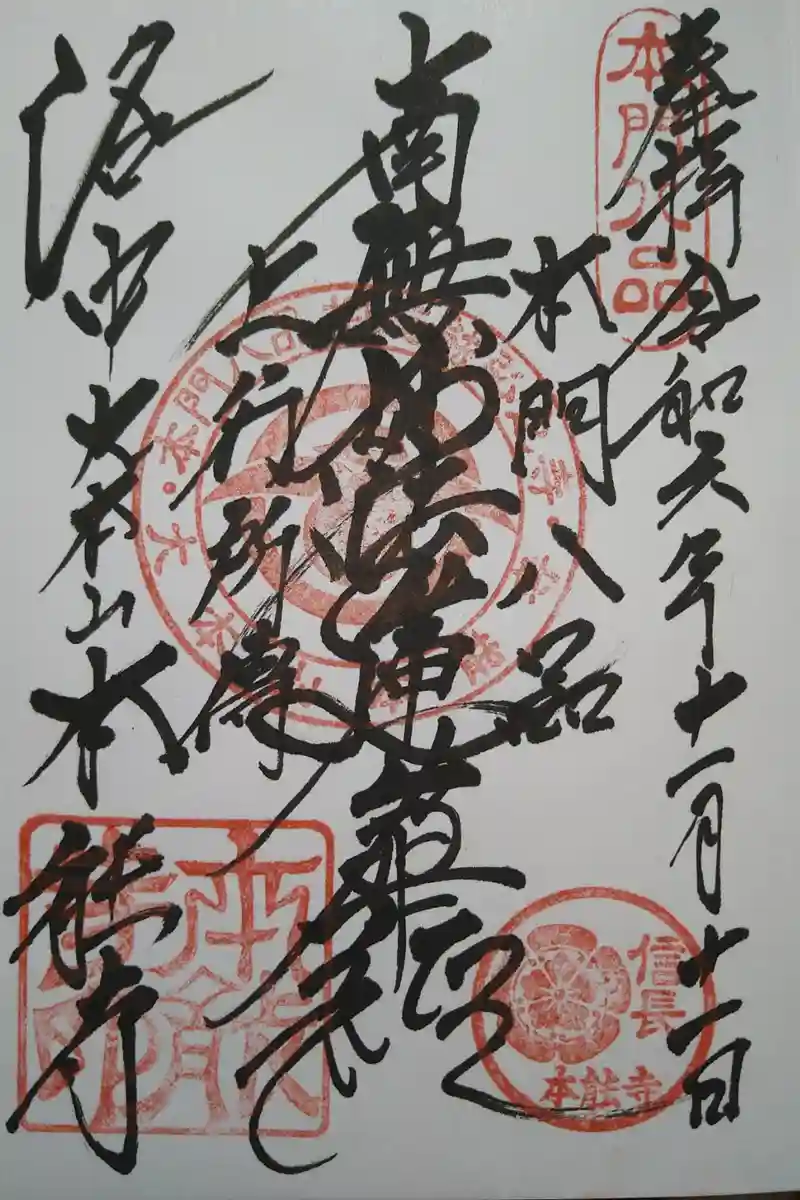 本門八品
奉拝 令和元年十一月十一日
本門八品
南無妙法蓮華經
上行所傳
洛中 大本山 本能寺
信長
本能寺